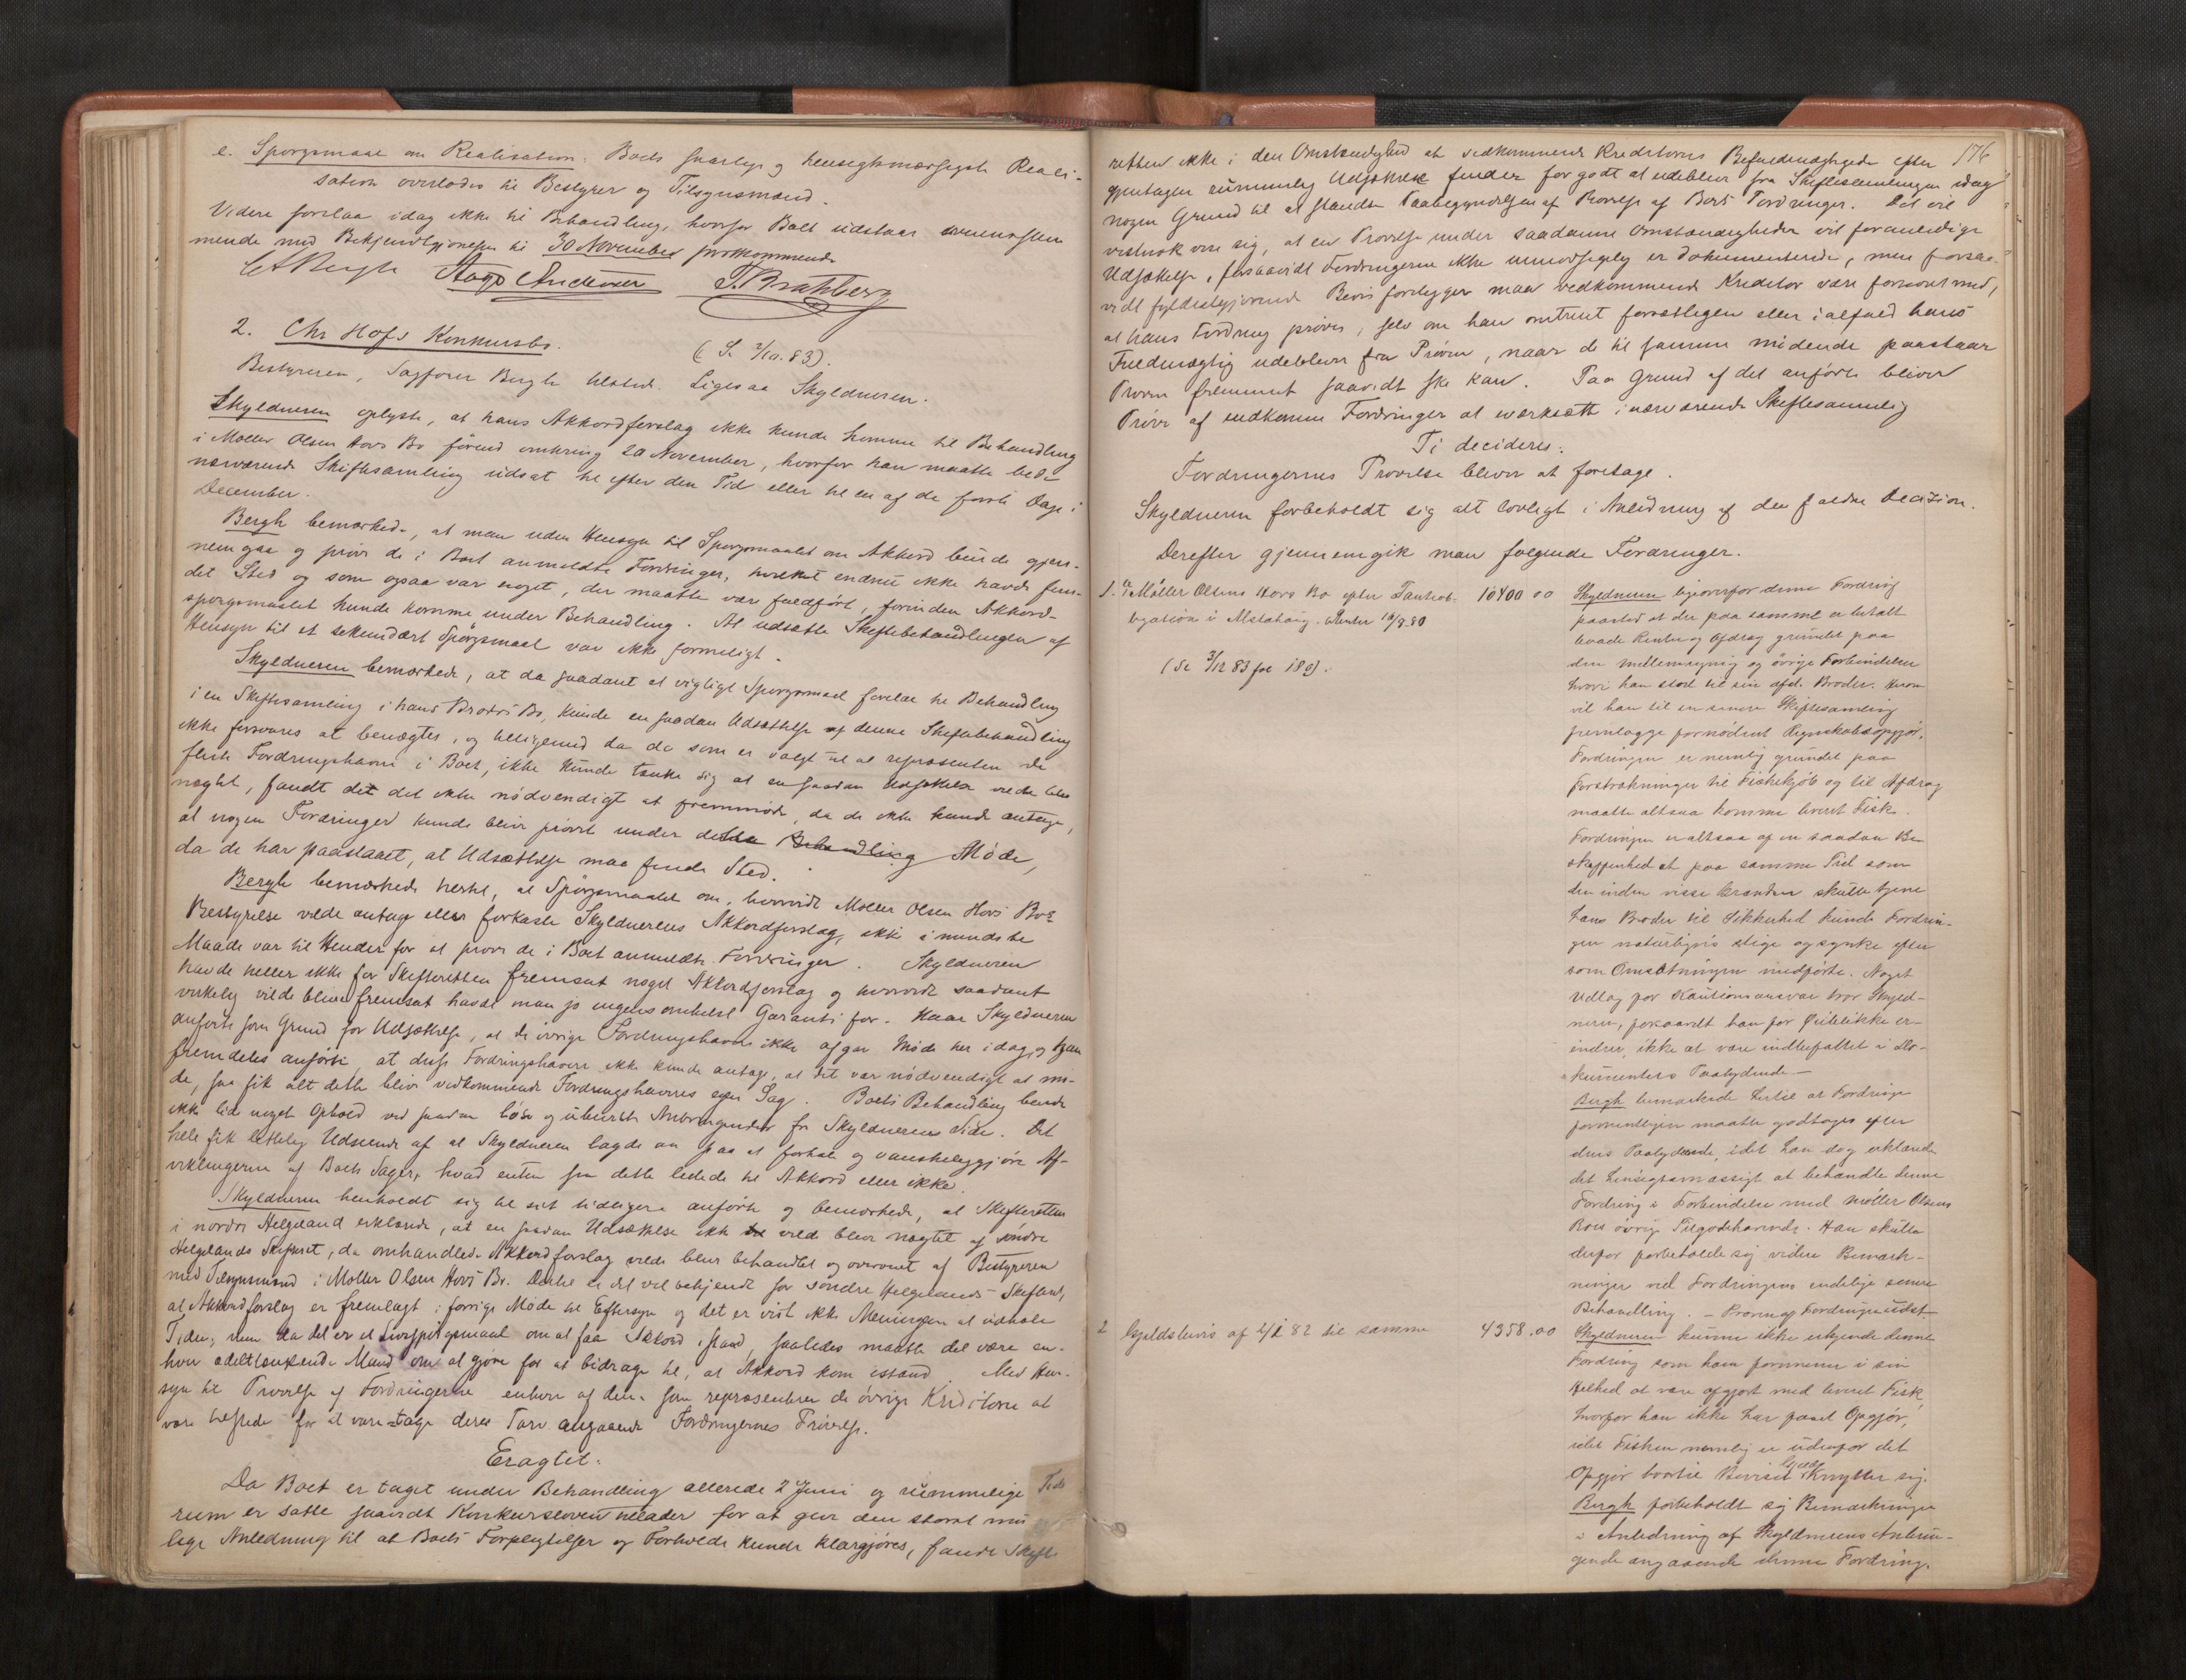 e. Spørgsmaal om Realisation. Boets snarlige og hensigtsmæssigste Reali-
sation overlodes til Bestyrer og Tilsynsmænd.
Videre forelaa idag ikke til Behandling, hvorfor Boet udstaar overensstem
mende med Bekjendtgjørelsen til 30 November førstkommende
CA Bergh Aage Andersen T. Bratberg
2. Chr Hofs Konkursbo.
(Se 2/10.83).
Bestyreren, Sagfører Bergh tilstede. Ligesaa Skyldneren.
Skyldneren oplyste, at hans Akkordforslag ikke kunde komme til Behandling
i Møller Olsen Hovs Bo førend omkring 20 November, hvorfor han maatte bede
nærværende Skiftesamling udsat til efter den Tid eller til en af de første Dage i
December.
Bergh bemærkede, at man uden Hensyn til Spørgsmaalet om Akkord burde gjen-
nemgaa og prøve de i Boet anmeldte Fordringer, hvilket endnu ikke havde fun-
det Sted og som ogsaa var noget, der maatte være fuldført, forinden Akkord-
spørgsmaalet kunde komme under Behandling. At udsætte Skiftebehandlingen af
Hensyn til et sekundært Spørgsmaal var ikke formeligt.
Skyldneren bemærkede, at da saadant et vigtigt Spørgsmaal forelaa til Behandling
i en Skiftesamling i hans Broders Bo, kunde en saadan Udsættelse af denne Skiftebehandling
ikke forsvares at benægtes, og tilligemed da de som er valgt til at repræsentere de
fleste Fordringshavere i Boet, ikke kunde tænke sig at en saadan Udsættelse vilde blive
nægtet, fandt det ikke nødvendigt at fremmøde, da de ikke kunde antage,
at nogen Fordringer kunde blive prøvet under dette Behandling Møde,
da de har paastaaet, at Udsættelse maa finde Sted.
Bergh bemærkede hertil, at Spørgsmaalet om, hvorvidt Møller Olsen Hovs Bos
Bestyrelse vilde antage eller forkaste Skyldnerens Akkordforslag, ikke i mindste
Maade var til Hinder for at prøve de i Boet anmeldte Fordringer. Skyldneren
havde heller ikke for Skifteretten fremsat noget Akkordforslag og hvorvidt saadant
virkelig vilde blive fremsat havde man jo ingensomhelst Garanti for. Naar Skyldneren
anførte som Grund for Udsættelse, at de øvrige Fordringshavere ikke afgav Møde her idag, og han
fremdeles anførte, at disse Fordringshavere ikke kunde antage, at det var nødvendigt at mø-
de, saa fik alt dette blive vedkommende Fordringshaveres egen Sag. Boets Behandling burde
ikke lide noget Ophold ved saadan løse og ubeviste Anbringender fra Skyldnerens Side. Det
hele fik letteligt Udseende af at Skyldneren lagde an paa at forhale og vanskeliggjøre Af-
viklingerne af Boets Sager, hvad enten saa dette ledede til Akkord eller ikke.
Skyldneren henholdt sig til sit tidligere anførte og bemærkede, at Skifteretten
i nordre Helgeland erklærede, at en saadan Udsættelse ikke vilde blive nægtet af søndre
Helgelands Skifteret, da omhandlede Akkordforslag vilde blive behandlet og overveiet af Bestyreren
med Tilsynsmænd i Møller Olsen Hovs Bo. Dertil er det vel bekjendt for søndre Helgelands Skifteret,
at Akkordforslag er fremlagt i forrige Møde til Eftersyn og det er vist ikke Meningen at udhale
Tiden, men da det er et Livsspørgsmaal om at faa Akkord istand, saaledes maatte det være en-
hver ædeltænkende Mand om at gjøre for at bidrage til, at Akkord kom istand. Med Hen-
syn til Prøvelse af Fordringerne enhver af dem som repræsenterer de øvrige Kreditorer at
være tilstede for at vare-tage deres Tarv angaaende Fordringernes Prøvelse.
Eragtet:
Da Boet er taget under Behandling allerede 2 Juni og rummelige Tids
rum er satte saavidt Konkursloven tillader for at give den størst mu
lige Anledning til at Boets Forpligtelser og Forholde kunde klargjøres, fandt Skifte
176
retten ikke i den Omstændighed at vedkommende Kreditorers Befuldmægtigede efter
gjentagen rummelig Udsættelse finder for godt at udeblive fra Skiftesamlingen idag
nogen Grund til at standse Paabegyndelsen af Prøvelse af Boets Fordringer. Det vil
vistnok vise sig, at en Prøvelse under saadanne Omstændigheder vil foranledige
Udsættelse, forsaavidt Fordringerne ikke umodsigelig er dokumenterede, men forsaa-
vidt fyldestgjørende Bevis foreligger maa vedkommende Kreditor være fornøiet med,
at hans Fordring prøves, selv om han omtrent forsætlig eller i alfald hans
Fuldmægtig udebliver fra Prøven, naar de til samme mødende paastaar
Prøven fremmet saavidt ske kan. Paa Grund af det anførte bliver
Prøve af indkomne Fordringer at iværksætte i nærværende Skiftesamling
Ti decideres:
Fordringernes Prøvelse bliver at foretage.
Skyldneren forbeholdt sig alt lovligt i Anledning af den faldne Decision.
Derefter gjennemgik man følgende Fordringer.
1. Møller Olsens Hovs Bo efter Panteob- 10400 00
ligation i Alstahaug. Renter 10/8.80
(Se 3/12 83 fol 189).
Skyldneren ligeoverfor denne Fordring
paastod at der paa samme er betalt
baade Renter og Afdrag grundet paa
den Mellemregning og øvrige Forbindelser
hvori han stod til sin afd. Broder. Herom
vil han til en senere Skiftesamling
fremlægge fornødent Regnskabsopgjør.
Fordringen er nemlig grundet paa
Forstrækninger til Fiskekjøb og til Afdrag
maatte altsaa komme leveret Fisk.
Fordringen er altsaa af en saadan Be-
skaffenhed at paa samme Tid som
den inden visse Grændser skulde tjene
hans Broder til Sikkerhed kunde Fordrin-
gen naturligvis stige og synke efter
som Omsætningen medførte. Noget
Udlag for Kautionsansvar tror Skyld-
neren, forsaavidt han for Øieblikket er-
indrer, ikke at være indbefattet i Do-
kumentets Paalydende.—
Bergh bemærkede hertil at Fordringen
formentligen maatte godtages efter
dens Paalydende, idet han dog erklærede
det hensigtsmæssigt at behandle denne
Fordring i Forbindelse med Møller Olsens
Bos øvrige Tilgodehavende. Han skulde
derfor forbeholde sig videre Bemærk-
ninger ved Fordringens endelige senere
Behandling. — Prøven af Fordringen udst.
2 Gjeldsbevis af 2/1 82 til samme 4358.00
Skyldneren kunne ikke erkjende denne
Fordring som han formener i sin
Helhed at være afgjort med leveret Fisk,
hvorfor han ikke har faaet Opgjør,
idet Fisken nemlig er udenfor det
Opgjør hvortil Beviset knytter sig.
Bergh forbeholdt sig Bemærkninger
i Anledning af Skyldnerens Anbrin-
gende angaaende denne Fordring.